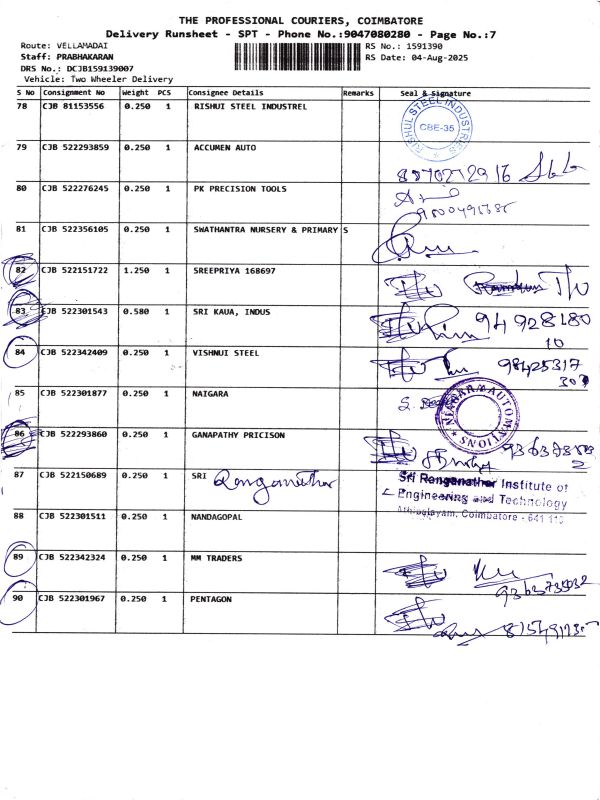 THE PROFESSIONAL COURIERS, COIMBATORE
Delivery Runsheet - SPT - Phone No.:9047080280 - Page No.:7
Route: VELLAMADAI RS No.: 1591390
Staff: PRABHAKARAN RS Date: 04-Aug-2025
DRS No.: DCJB159139007
Vehicle: Two Wheeler Delivery
S No Consignment No Weight PCS Consignee Details Remarks Seal & Signature
78 CJB 81153556 0.250 1 RISHUI STEEL INDUSTREL
RISHUI STEEL INDUSTRIES
CBE-35
79 CJB 522293859 0.250 1 ACCUMEN AUTO
80 CJB 522276245 0.250 1 PK PRECISION TOOLS
81 CJB 522356105 0.250 1 SWATHANTRA NURSERY & PRIMARY S
82 CJB 522151722 1.250 1 SREEPRIYA 168697
83 CJB 522301543 0.580 1 SRI KAUA, INDUS
94 928180
10
84 CJB 522342409 0.250 1 VISHNUI STEEL
98425317
307
85 CJB 522301877 0.250 1 NAIGARA
86 CJB 522293860 0.250 1 GANAPATHY PRICISON
87 CJB 522150689 0.250 1 SRI Ranganathar
Sri Ranganathar Institute of
Engineering and Technology
Athipalayam, Coimbatore - 641 110
88 CJB 522301511 0.250 1 NANDAGOPAL
89 CJB 522342324 0.250 1 MM TRADERS
90 CJB 522301967 0.250 1 PENTAGON